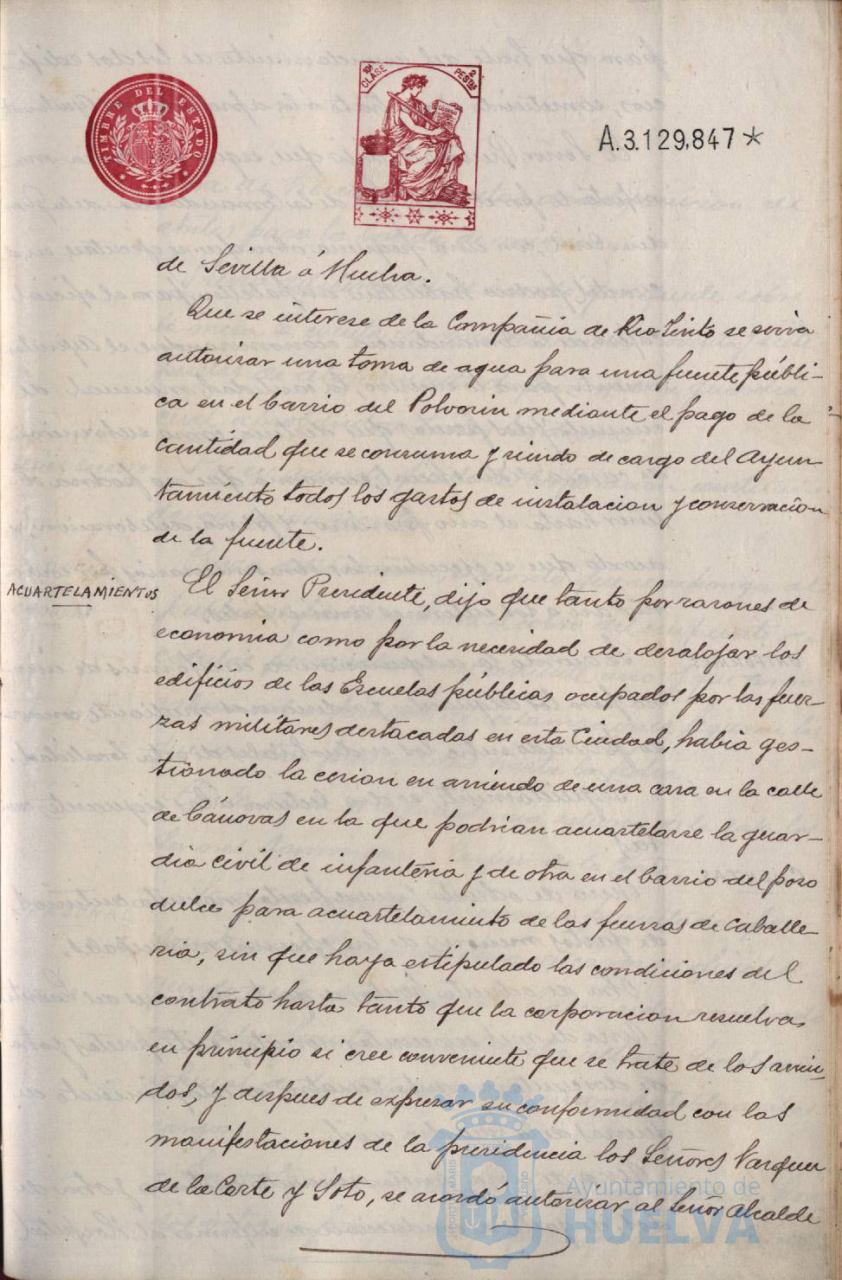 TIMBRE DEL ESTADO
10ª CLASE
2 PESTAS
A.3.129,847*
de Sevilla á Huelva.
Que se interese de la Compañia de Rio Tinto se sirva
autorizar una toma de agua para una fuente públi-
ca en el barrio del Polvorin mediante el pago de la
cantidad que se consuma y siendo de cargo del Ayun
tamiento todos los gastos de instalacion y conservacion
de la fuente.
ACUARTELAMIENTOS
El Señor Presidente, dijo que tanto por razones de
economia como por la necesidad de desalojar los
edificios de las Escuelas públicas ocupados por las fuer-
zas militares destacadas en esta Ciudad, habia ges-
tionado la cesion en arriendo de una casa en la calle
de Cánovas en la que podrian acuartelarse la guar-
dia civil de infanteria y de otra en el barrio del pozo
dulce para acuartelamiento de las fuerzas de Caballe
ria, sin que haya estipulado las condiciones del
contrato hasta tanto que la corporacion resuelva
en principio si cree conveniente que se trate de los arrien-
dos, y despues de expresar su conformidad con las
manifestaciones de la presidencia los Señores Vazquez
de la Corte y Soto, se acordó autorizar al Señor Alcalde
Ayuntamiento de
HUELVA